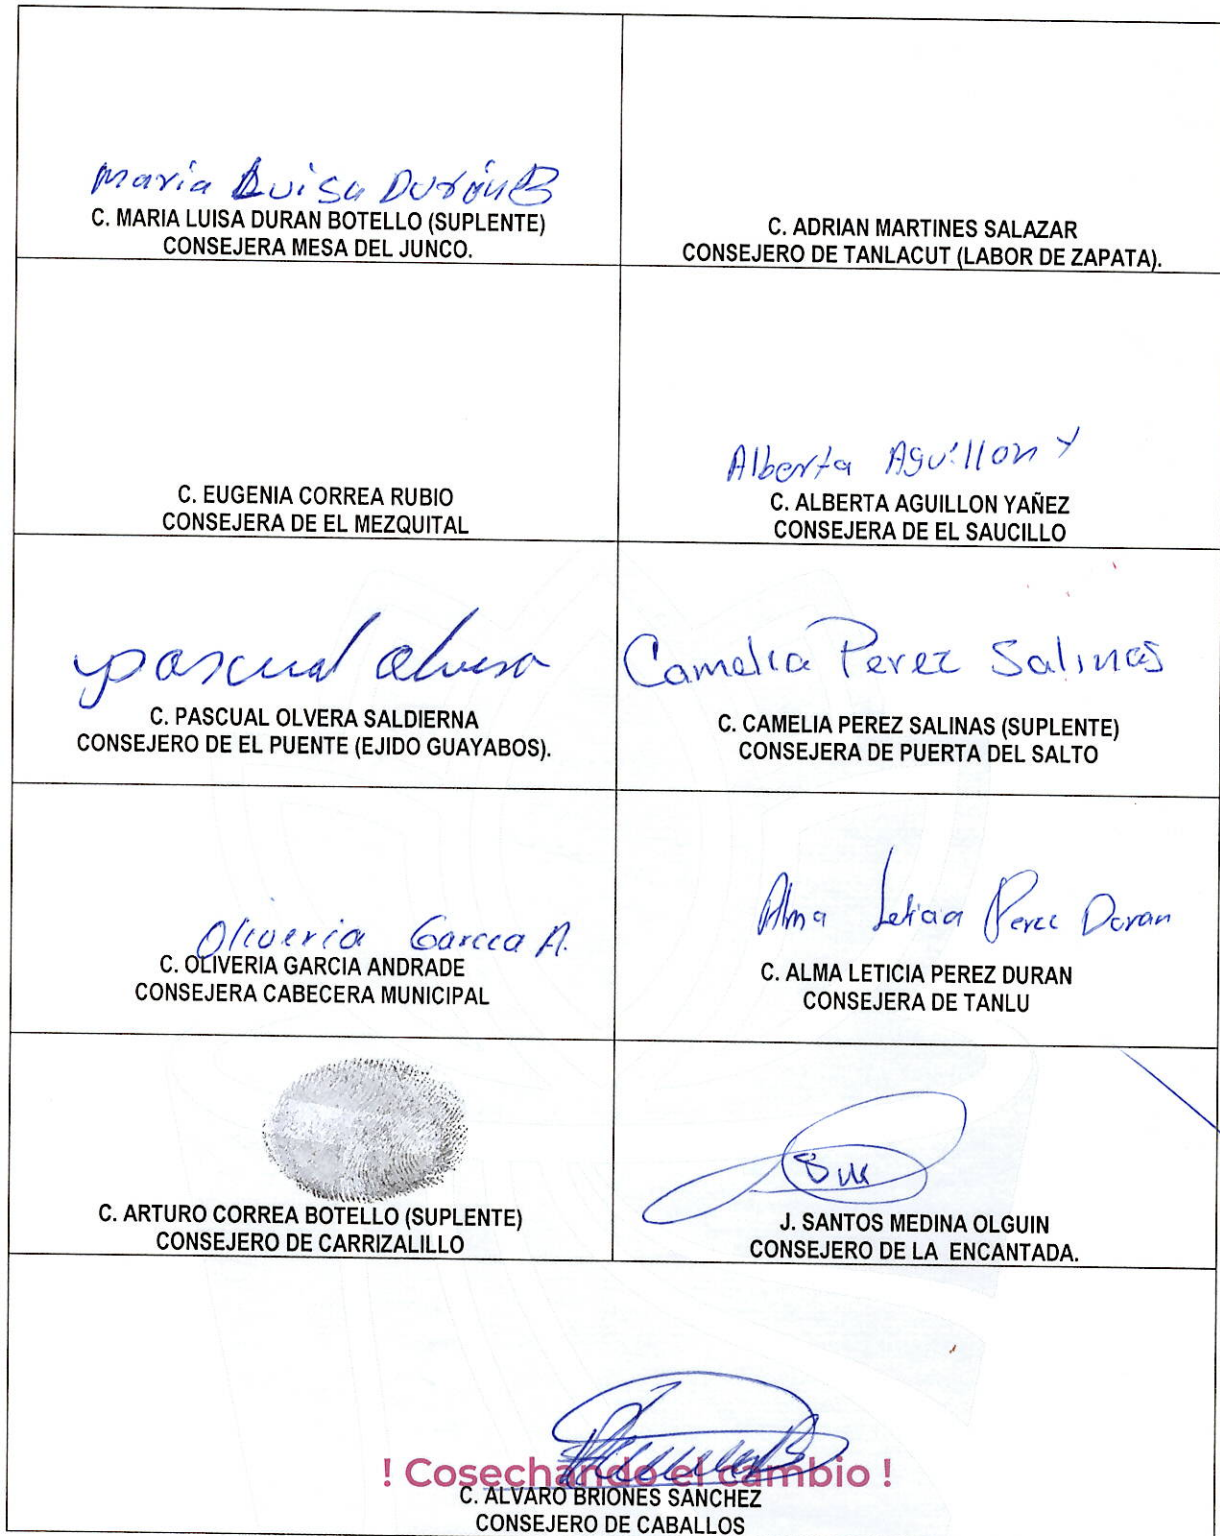 Maria Luisa Durán B
C. MARIA LUISA DURAN BOTELLO (SUPLENTE)
CONSEJERA MESA DEL JUNCO.
C. ADRIAN MARTINES SALAZAR
CONSEJERO DE TANLACUT (LABOR DE ZAPATA).
C. EUGENIA CORREA RUBIO
CONSEJERA DE EL MEZQUITAL
Alberta Aguillon Y
C. ALBERTA AGUILLON YAÑEZ
CONSEJERA DE EL SAUCILLO
pascual olvera
C. PASCUAL OLVERA SALDIERNA
CONSEJERO DE EL PUENTE (EJIDO GUAYABOS).
Camelia Perez Salinas
C. CAMELIA PEREZ SALINAS (SUPLENTE)
CONSEJERA DE PUERTA DEL SALTO
Oliveria Garcia A.
C. OLIVERIA GARCIA ANDRADE
CONSEJERA CABECERA MUNICIPAL
Alma Leticia Perez Duran
C. ALMA LETICIA PEREZ DURAN
CONSEJERA DE TANLU
C. ARTURO CORREA BOTELLO (SUPLENTE)
CONSEJERO DE CARRIZALILLO
J. SANTOS MEDINA OLGUIN
CONSEJERO DE LA ENCANTADA.
! Cosechando el cambio !
C. ALVARO BRIONES SANCHEZ
CONSEJERO DE CABALLOS